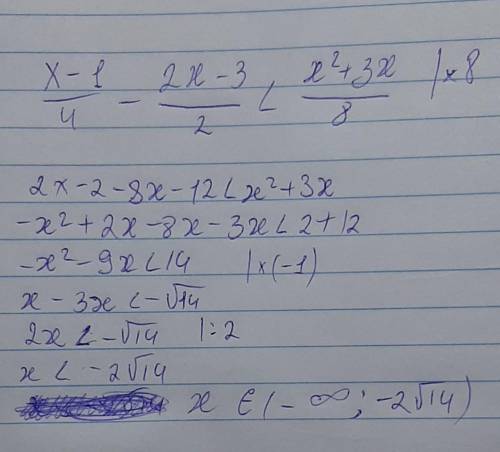 x-1/4 - 2x-3/2 < x²+3x/8 |×8
2x-2-8x-12<x²+3x
-x²+2x-8x-3x<2+12
-x²-9x<14 |×(-1)
x-3x<-√14
2x<-√14 |:2
x<-2√14
x ∈(-∞;-2√14)